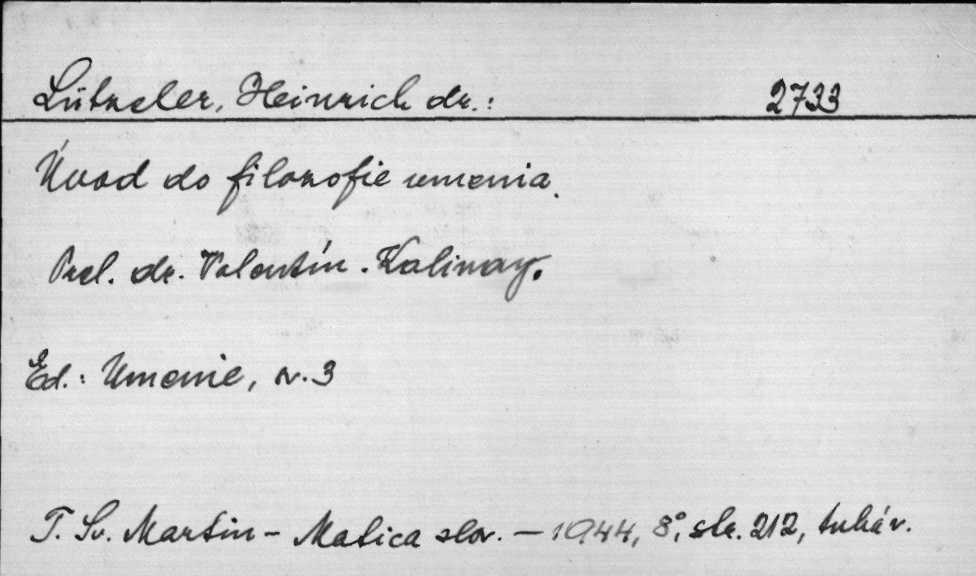 Lützeler, Heinrich dr.: 2733
Úvod do filozofie umenia.
Prel. dr. Valentín Kalinay.
Ed.: Umenie, sv. 3
T. Sv. Martin - Matica slov. - 1944, 8°, str. 212, tuhá v.